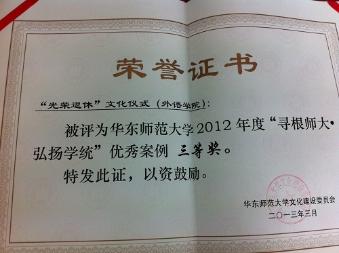 荣誉证书
“光荣退休”文化仪式（外语学院）：
被评为华东师范大学2012年度“寻根师大·
弘扬学统”优秀案例 三等奖。
特发此证，以资鼓励。
华东师范大学文化建设委员会
二〇一三年三月